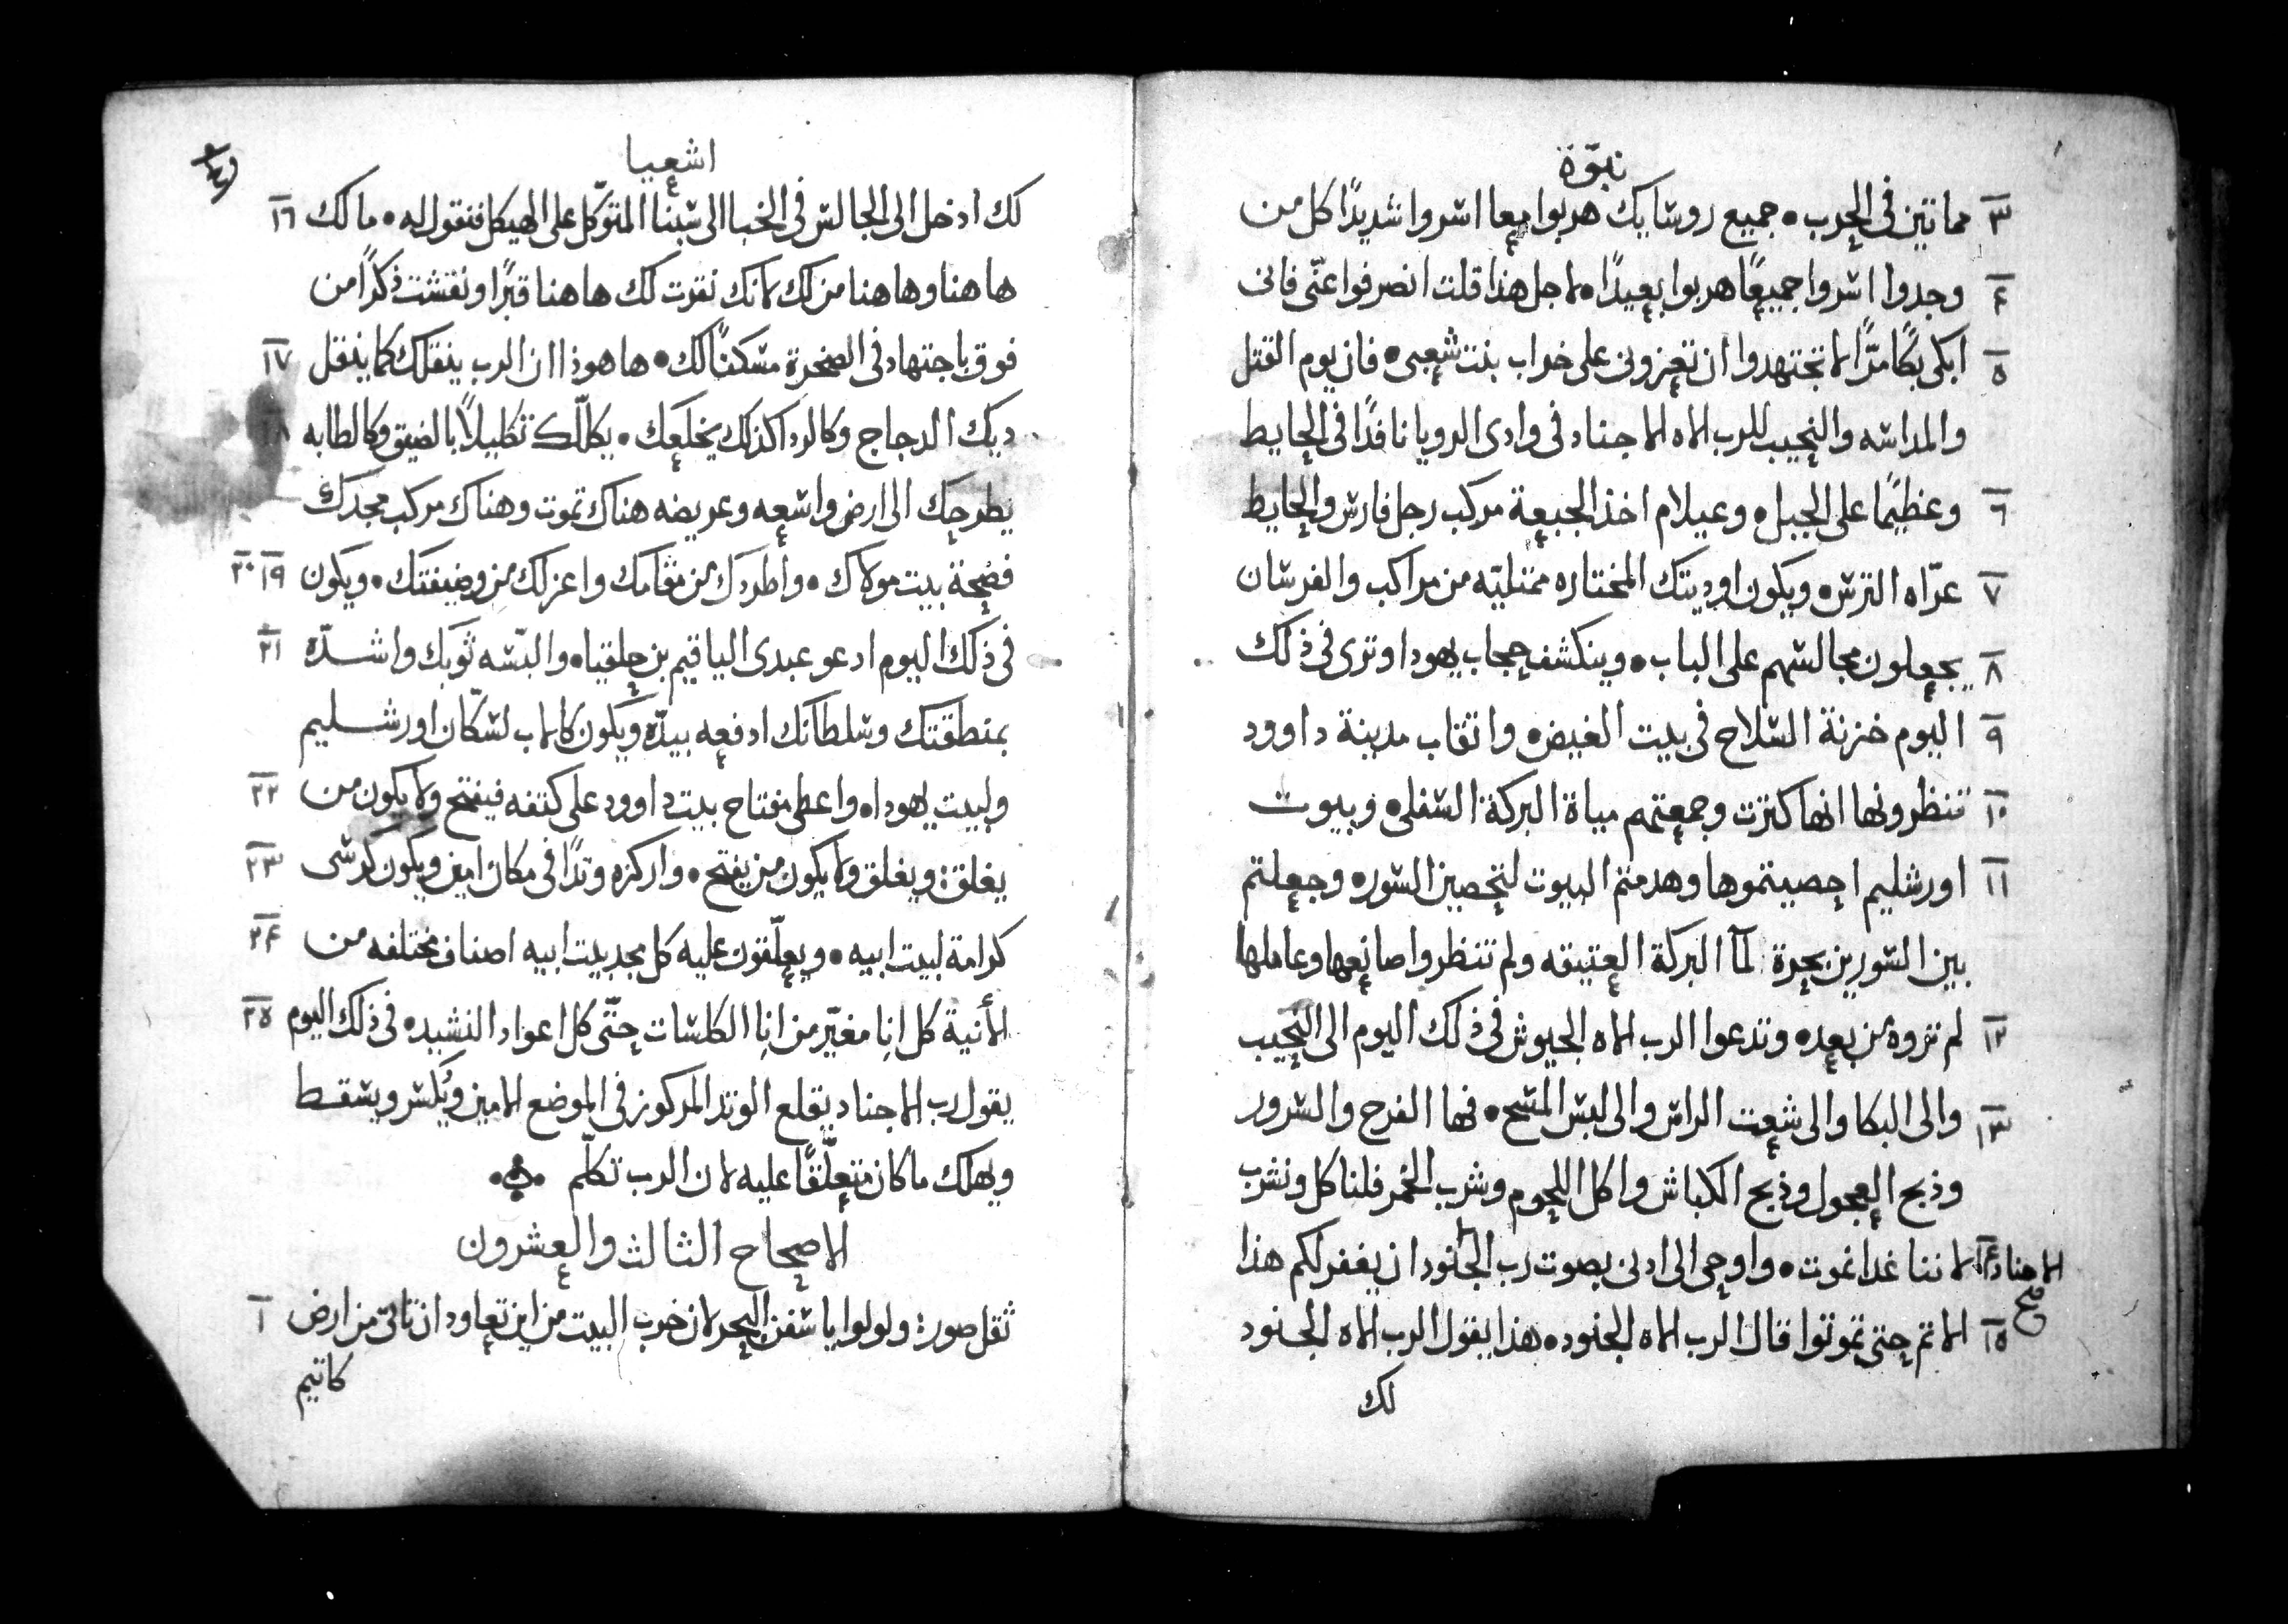 نبوّة
٣ مماتين في الحرب • جميع روسايك هربوا معا اسروا شديدًا كل من
٤ وجدوا اسروا جميعًا هربوا بعيدًا • لاجل هذا قلت انصرفوا عنّى فانى
٥ ابكى بكًا مرًّا لا تجتهدوا ان تعزونى على خراب بنت شعبى • فان يوم القتل
والمداسه والنحيب للرب الاه الاجناد فى وادى الرويا نافدًا فى الحايط
٦ وعظيمًا على الجبل • وعيلام اخذ الجبعة مركب رجل فارس والحايط
٧ عرّاه الترس • ويكون اوديتك المختاره ممتليّه من مراكب والفرسان
٨ يجعلون مجالسهم على الباب • وينكشف حجاب يهودا وترى فى ذلك
٩ اليوم خزنة السلاح فى بيت الغيض • واتقاب مدينة داوود
١٠ تنظرونها انها كثرت وجمعتم مياة البركة السفلى • وبيوت
١١ اورشليم احصيتموها وهدمتم البيوت لتحصين السور • وجعلتم
بين السورين بحرة لمآ البركة العتيقه ولم تنظروا صانعها وعاملها
١٢ لم تروه من بعد • وتدعوا الرب الاه الجيوش فى ذلك اليوم الى النحيب
١٣ والى البكا والى شعت الراس والى لبس المسح • فها الفرح والسرور
وذبح العجول وذبح الكباش واكل اللحوم وشرب الخمر فلناكل ونشرب
١٤ لاننا غدا نموت • واوحى الى ادنى بصوت رب الجنود ان يغفر لكم هذا
الاجناد صح
١٥ الاتم حتى تموتوا قال الرب الاه الجنود • هذا يقول الرب الاه الجنود
لك
اشعيا
لك ادخل الى الجالس فى الخبا الى شبنا المتوّكل على الهيكل فتقول له • مالك ١٦
هاهنا وهاهنا من لك لانك نقرت لك هاهنا قبرًا ونقشت ذكرًا من
فوق باجتهاد فى الصخرة مسكنًا لك • ها هوذا ان الرب ينقلك كما ينقل ١٧
ديك الدجاج وكالردا كذلك يخلعك • يكلّلك تكليلًا بالضيق وكالطابه
يطرحك الى ارض واسعه وعريضه هناك تموت وهناك مركب مجدك
فضيحة بيت مولاك • واطردك من مقامك واعزلك من وضيفتك • ويكون ١٩ ٢٠
فى ذلك اليوم ادعو عبدى الياقيم بن حلقيا • والبّسه ثوبك واشدّه ٢١
بمنطقتك وسلطانك ادفعه بيدّه ويكون كالاب لسكّان اورشليم
ولبيت يهودا • واعطى مفتاح بيت داوود على كتفه فيفتح ولا يكون من ٢٢
يغلق ويغلق ولا يكون من يفتح • واركزه وتدًا فى مكان امين ويكون كرسى ٢٣
كرامة لبيت ابيه • ويعلّقون عليه كل مجد بيت ابيه اصناف مختلفه من ٢٤
الأنية كل انا مغيّر من انا الكاسات حتّى كل اعواد النشيد • فى ذلك اليوم ٢٥
يقول رب الاجناد يقلع الوتد المركوز فى الموضع الامين ويُكسر ويسقط
ويهلك ما كان متعلّقًا عليه لان الرب تكلّم
الاصحاح الثالث والعشرون
ثقل صور ولولوا يا سفن البحر لان خرب البيت من اين تعاود ان تاتى من ارض ١
كاتيم